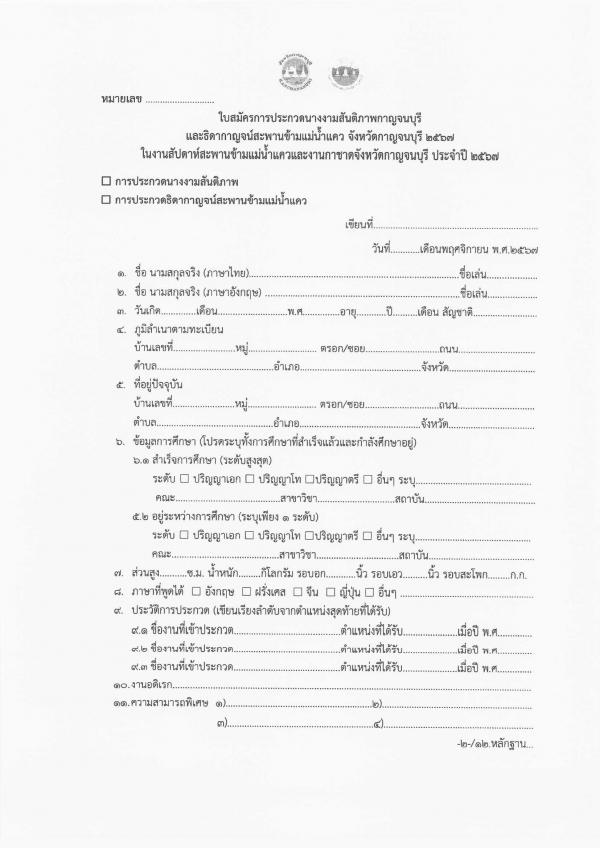 หมายเลข ............................
ใบสมัครการประกวดนางงามสันติภาพกาญจนบุรี
และธิดากาญจน์สะพานข้ามแม่น้ำแคว จังหวัดกาญจนบุรี ๒๕๖๗
ในงานสัปดาห์สะพานข้ามแม่น้ำแควและงานกาชาดจังหวัดกาญจนบุรี ประจำปี ๒๕๖๗
☐ การประกวดนางงามสันติภาพ
☐ การประกวดธิดากาญจน์สะพานข้ามแม่น้ำแคว
เขียนที่..................................................................
วันที่............เดือนพฤศจิกายน พ.ศ.๒๕๖๗
๑. ชื่อ นามสกุลจริง (ภาษาไทย)....................................................................................ชื่อเล่น....................
๒. ชื่อ นามสกุลจริง (ภาษาอังกฤษ) ..............................................................................ชื่อเล่น....................
๓. วันเกิด..............เดือน............................พ.ศ...............อายุ............ปี..........เดือน สัญชาติ..........................
๔. ภูมิลำเนาตามทะเบียน
บ้านเลขที่.........................หมู่............................ ตรอก/ซอย..............................ถนน...............................
ตำบล...............................................อำเภอ.................................................จังหวัด...................................
๕. ที่อยู่ปัจจุบัน
บ้านเลขที่.........................หมู่............................ ตรอก/ซอย..............................ถนน...............................
ตำบล...............................................อำเภอ.................................................จังหวัด...................................
๖. ข้อมูลการศึกษา (โปรดระบุทั้งการศึกษาที่สำเร็จแล้วและกำลังศึกษาอยู่)
๖.๑ สำเร็จการศึกษา (ระดับสูงสุด)
ระดับ ☐ ปริญญาเอก ☐ ปริญญาโท ☐ปริญญาตรี ☐ อื่นๆ ระบุ..............................................
คณะ..........................................สาขาวิชา..........................................สถาบัน............................................
๕.๒ อยู่ระหว่างการศึกษา (ระบุเพียง ๑ ระดับ)
ระดับ ☐ ปริญญาเอก ☐ ปริญญาโท ☐ปริญญาตรี ☐ อื่นๆ ระบุ..............................................
คณะ..........................................สาขาวิชา............................................สถาบัน..........................................
๗. ส่วนสูง...........ซ.ม. น้ำหนัก.........กิโลกรัม รอบอก............นิ้ว รอบเอว..........นิ้ว รอบสะโพก.........ก.ก.
๘. ภาษาที่พูดได้ ☐ อังกฤษ ☐ ฝรั่งเศส ☐ จีน ☐ ญี่ปุ่น ☐ อื่นๆ ......................................................
๙. ประวัติการประกวด (เขียนเรียงลำดับจากตำแหน่งสุดท้ายที่ได้รับ)
๙.๑ ชื่องานที่เข้าประกวด...........................................ตำแหน่งที่ได้รับ......................เมื่อปี พ.ศ..............
๙.๒ ชื่องานที่เข้าประกวด...........................................ตำแหน่งที่ได้รับ......................เมื่อปี พ.ศ..............
๙.๓ ชื่องานที่เข้าประกวด...........................................ตำแหน่งที่ได้รับ......................เมื่อปี พ.ศ..............
๑๐.งานอดิเรก................................................................................................................................................
๑๑.ความสามารถพิเศษ ๑)...........................................................๒)............................................................
๓)...........................................................๔)............................................................
-๒-/๑๒.หลักฐาน...